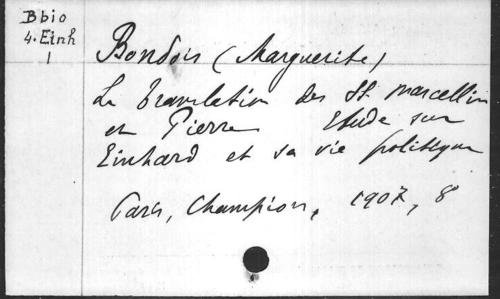 Bbio
4. Einh
1
Bondois (Marguerite)
La translation des SS. Marcellin
et Pierre Etude sur
Einhard et sa vie politique
Paris, Champion, 1907, 8